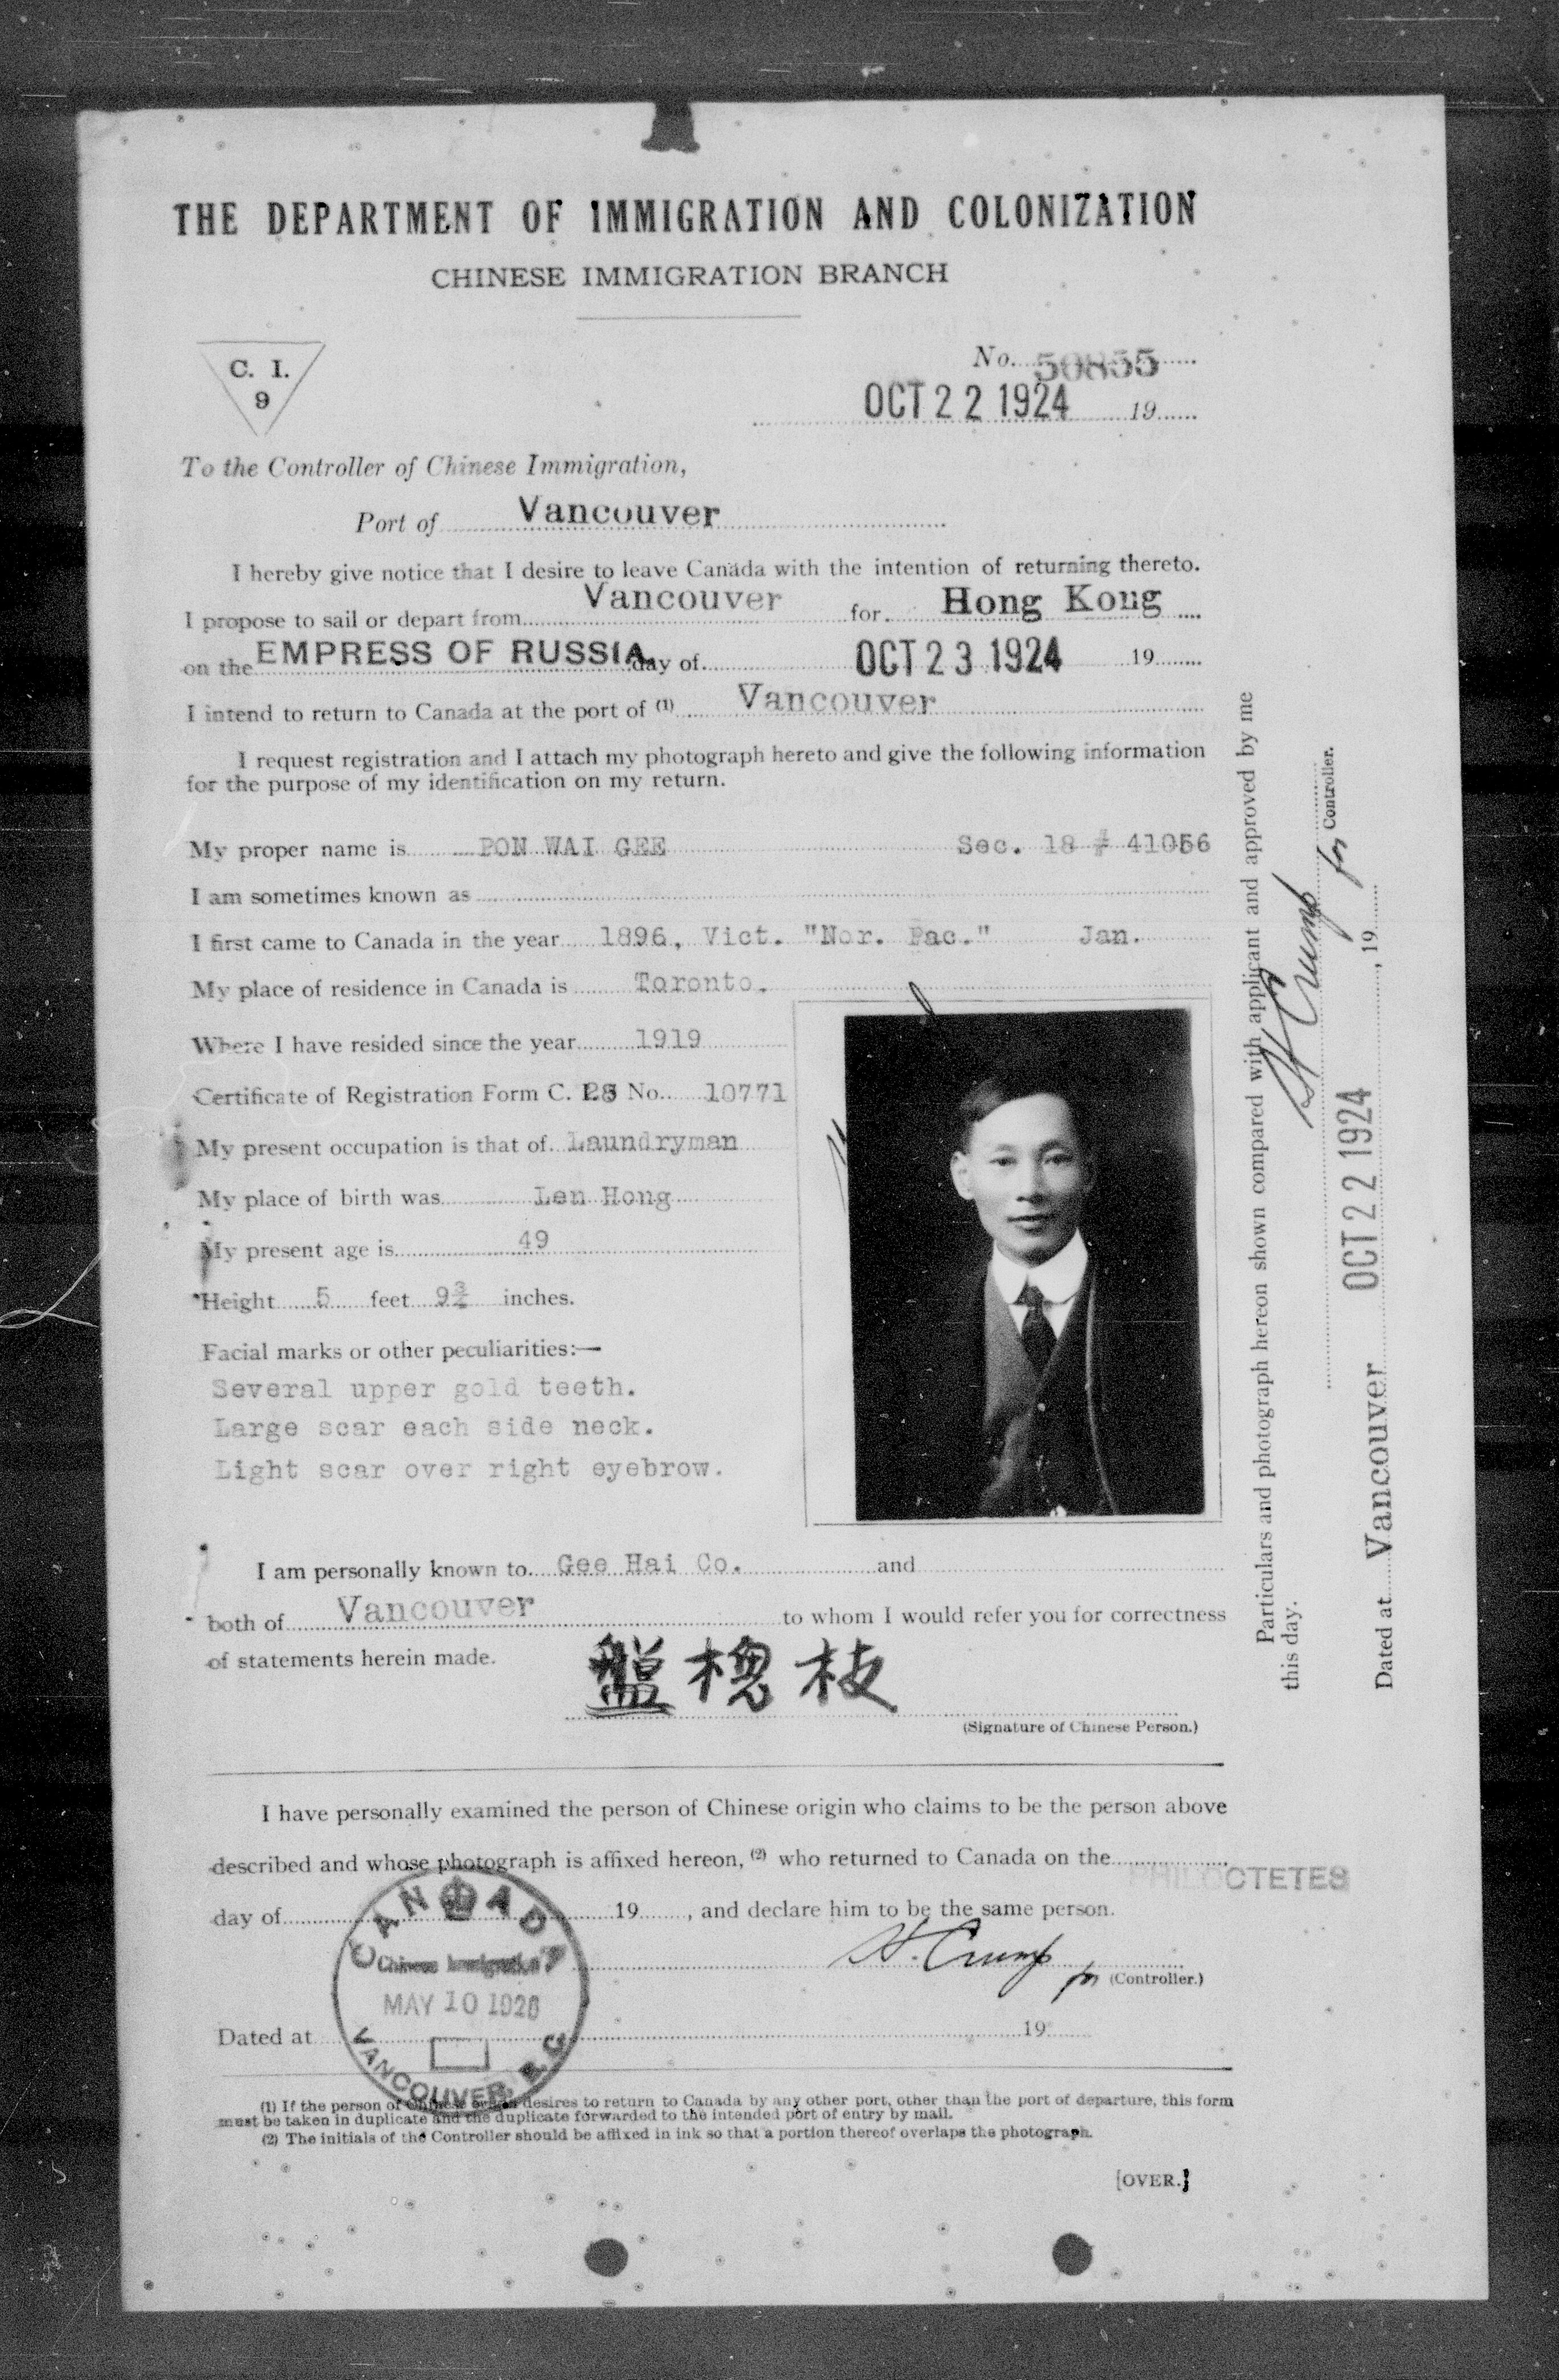 THE DEPARTMENT OF IMMIGRATION AND COLONIZATION
CHINESE IMMIGRATION BRANCH
C. I.
9
No. 50855
OCT 22 1924 19
To the Controller of Chinese Immigration,
Port of Vancouver
I hereby give notice that I desire to leave Canada with the intention of returning thereto.
I propose to sail or depart from Vancouver for Hong Kong
on the EMPRESS OF RUSSIA day of OCT 23 1924 19
I intend to return to Canada at the port of (1) Vancouver
I request registration and I attach my photograph hereto and give the following information
for the purpose of my identification on my return.
My proper name is PON WAI GEE Sec. 18 # 41056
I am sometimes known as
I first came to Canada in the year 1896, Vict. "Nor. Pac." Jan.
My place of residence in Canada is Toronto.
Where I have resided since the year 1919
Certificate of Registration Form C. I. 28 No. 10771
My present occupation is that of Laundryman
My place of birth was Len Hong
My present age is 49
Height 5 feet 9¾ inches.
Facial marks or other peculiarities:—
Several upper gold teeth.
Large scar each side neck.
Light scar over right eyebrow.
I am personally known to Gee Hai Co. and
both of Vancouver to whom I would refer you for correctness
of statements herein made.
枝
(Signature of Chinese Person.)
I have personally examined the person of Chinese origin who claims to be the person above
described and whose photograph is affixed hereon, (2) who returned to Canada on the
PHILOCTETES
day of 19 , and declare him to be the same person.
H. Crump for (Controller.)
Dated at 19
CANADA
Chinese Immigration
MAY 10 1926
VANCOUVER, B.C.
(1) If the person of Chinese origin desires to return to Canada by any other port, other than the port of departure, this form
must be taken in duplicate and the duplicate forwarded to the intended port of entry by mail.
(2) The initials of the Controller should be affixed in ink so that a portion thereof overlaps the photograph.
[OVER.]
Particulars and photograph hereon shown compared with applicant and approved by me
this day.
H Crump for Controller.
Dated at Vancouver OCT 22 1924, 19